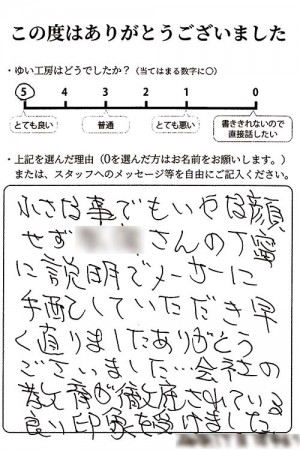 この度はありがとうございました
・ゆい工房はどうでしたか？（当てはまる数字に○）
5 4 3 2 1 0
とても良い 普通 とても悪い 書ききれないので
直接話したい
・上記を選んだ理由（0を選んだ方はお名前をお願いします。）
または、スタッフへのメッセージ等を自由にご記入ください。
小さな事でもいやな顔
せず さんの丁寧
に説明でメーカーに
手配していただき早
く直りましたありがとう
ございました…会社の
教育が徹底されている
良い印象を受けました